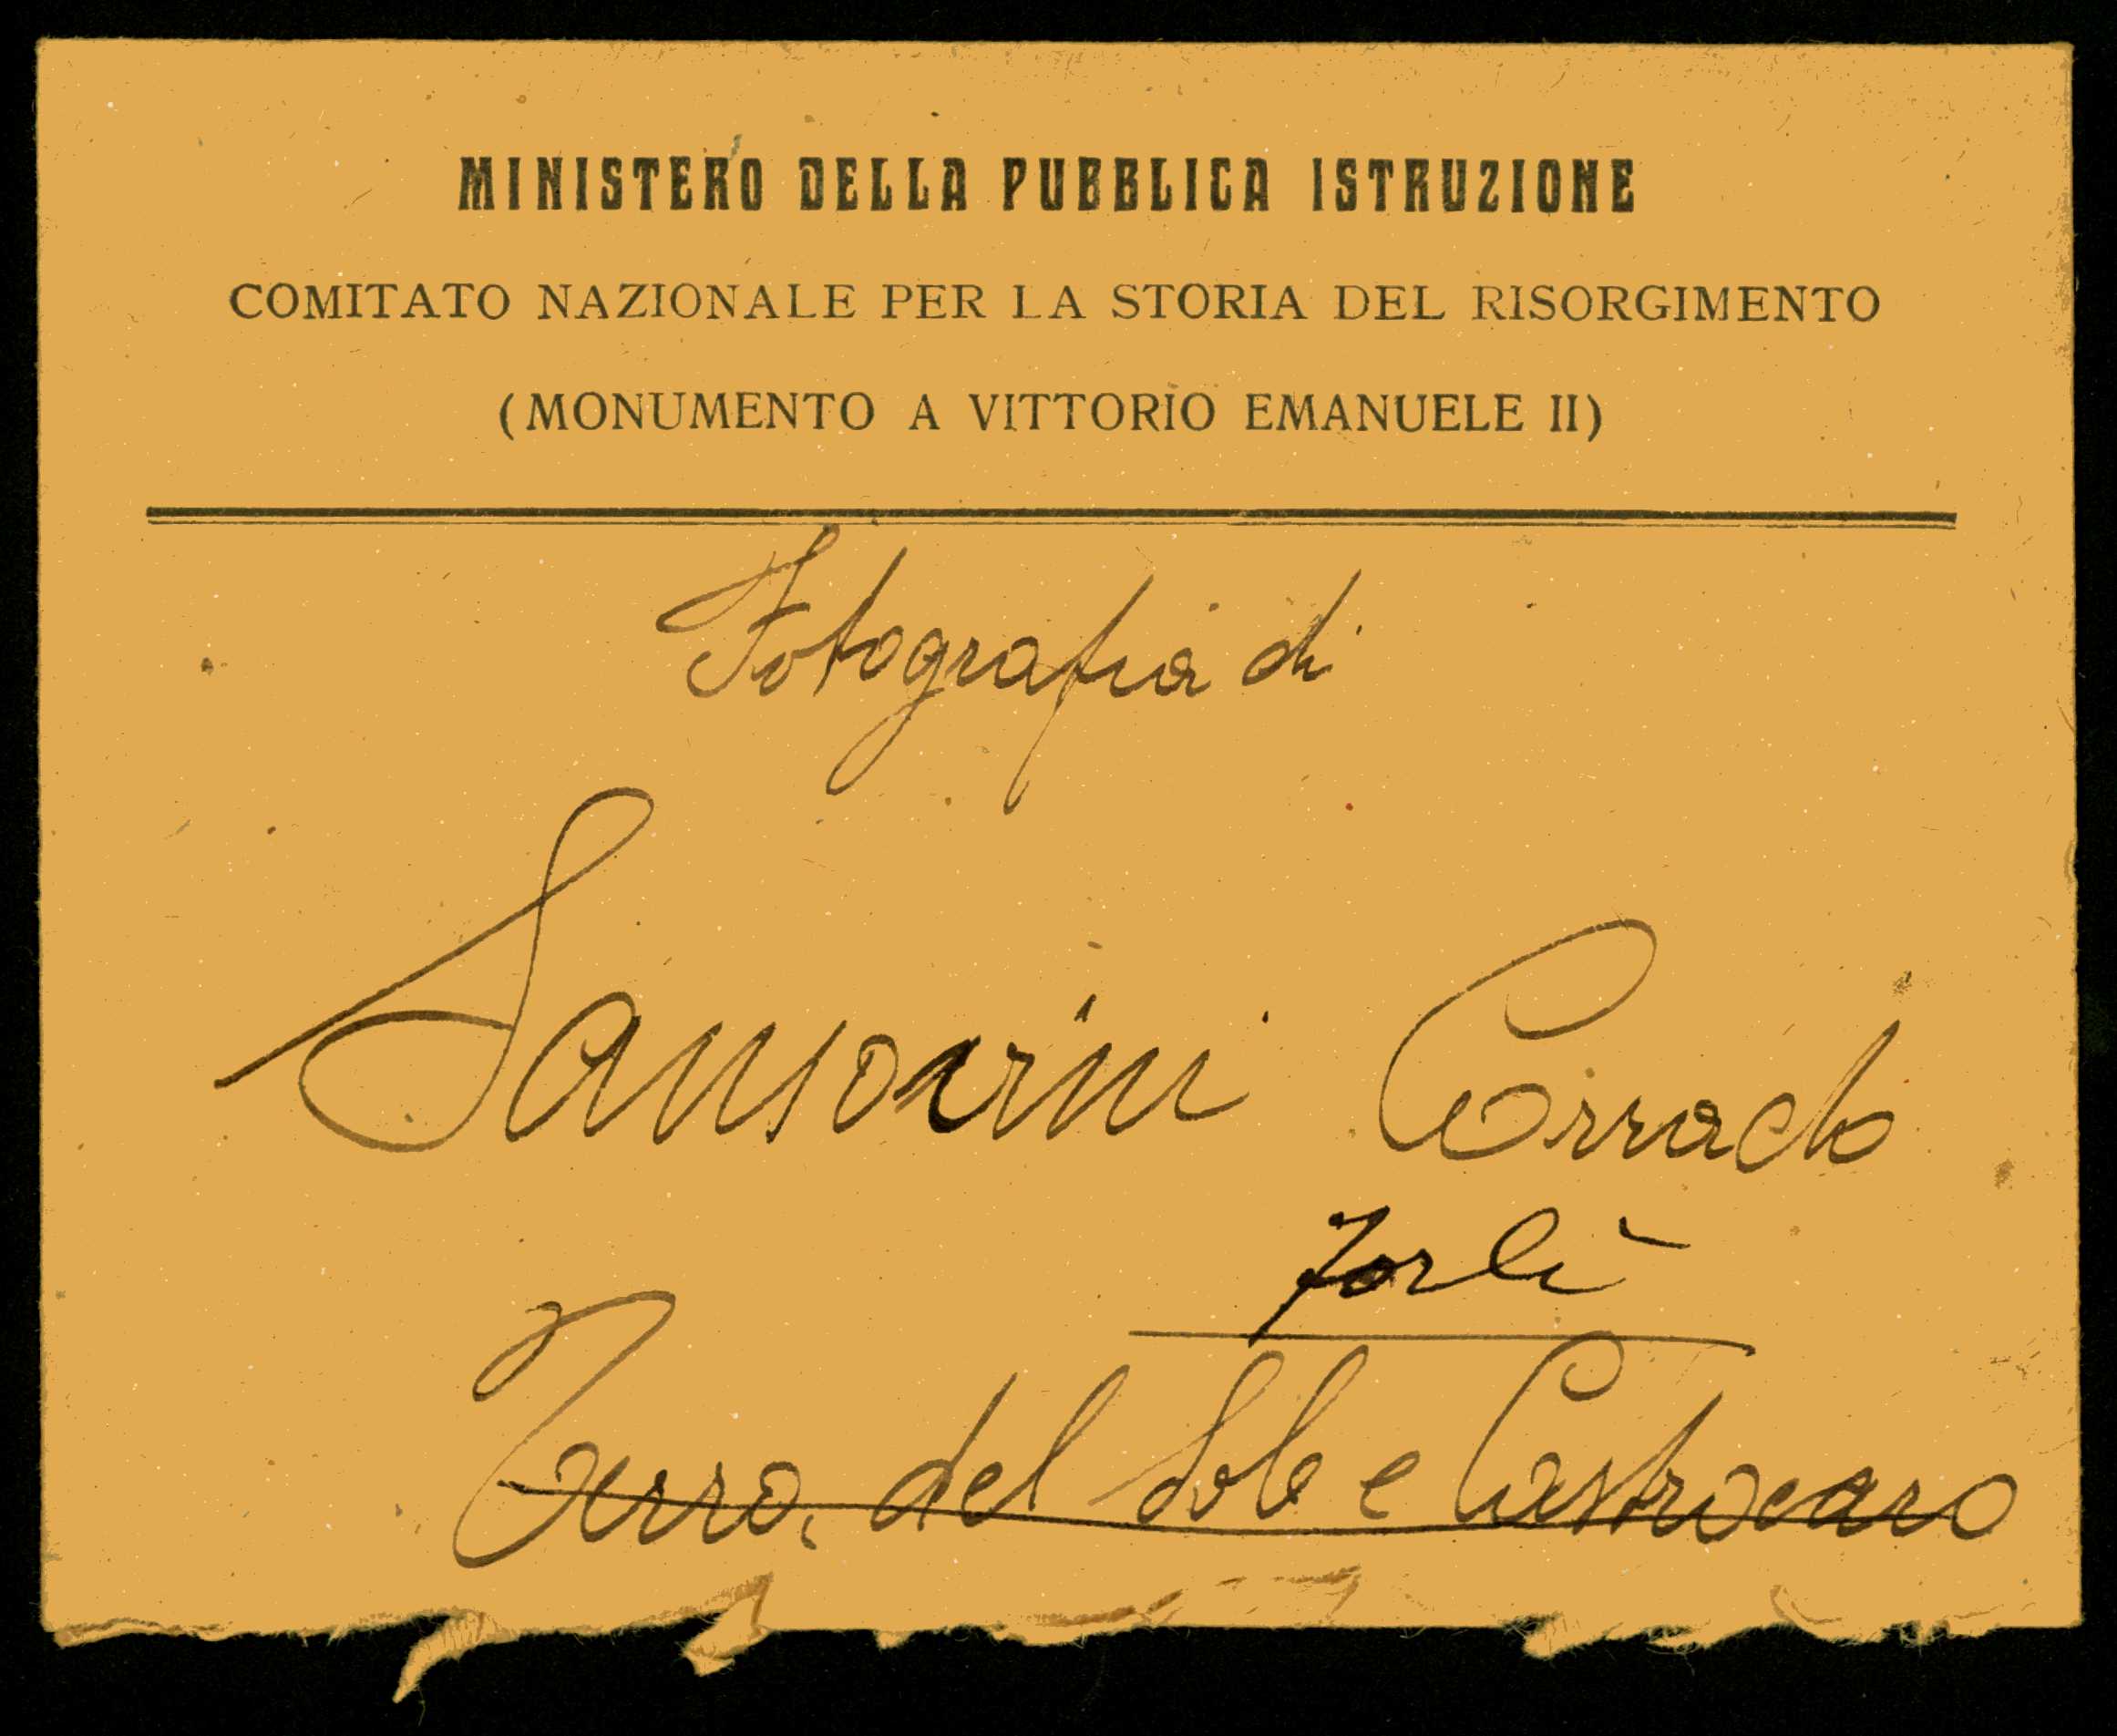 MINISTERO DELLA PUBBLICA ISTRUZIONE
COMITATO NAZIONALE PER LA STORIA DEL RISORGIMENTO
(MONUMENTO A VITTORIO EMANUELE II)
Fotografia di
Sansovini Corrado
Forlì
Terra del Sole e Castrocaro